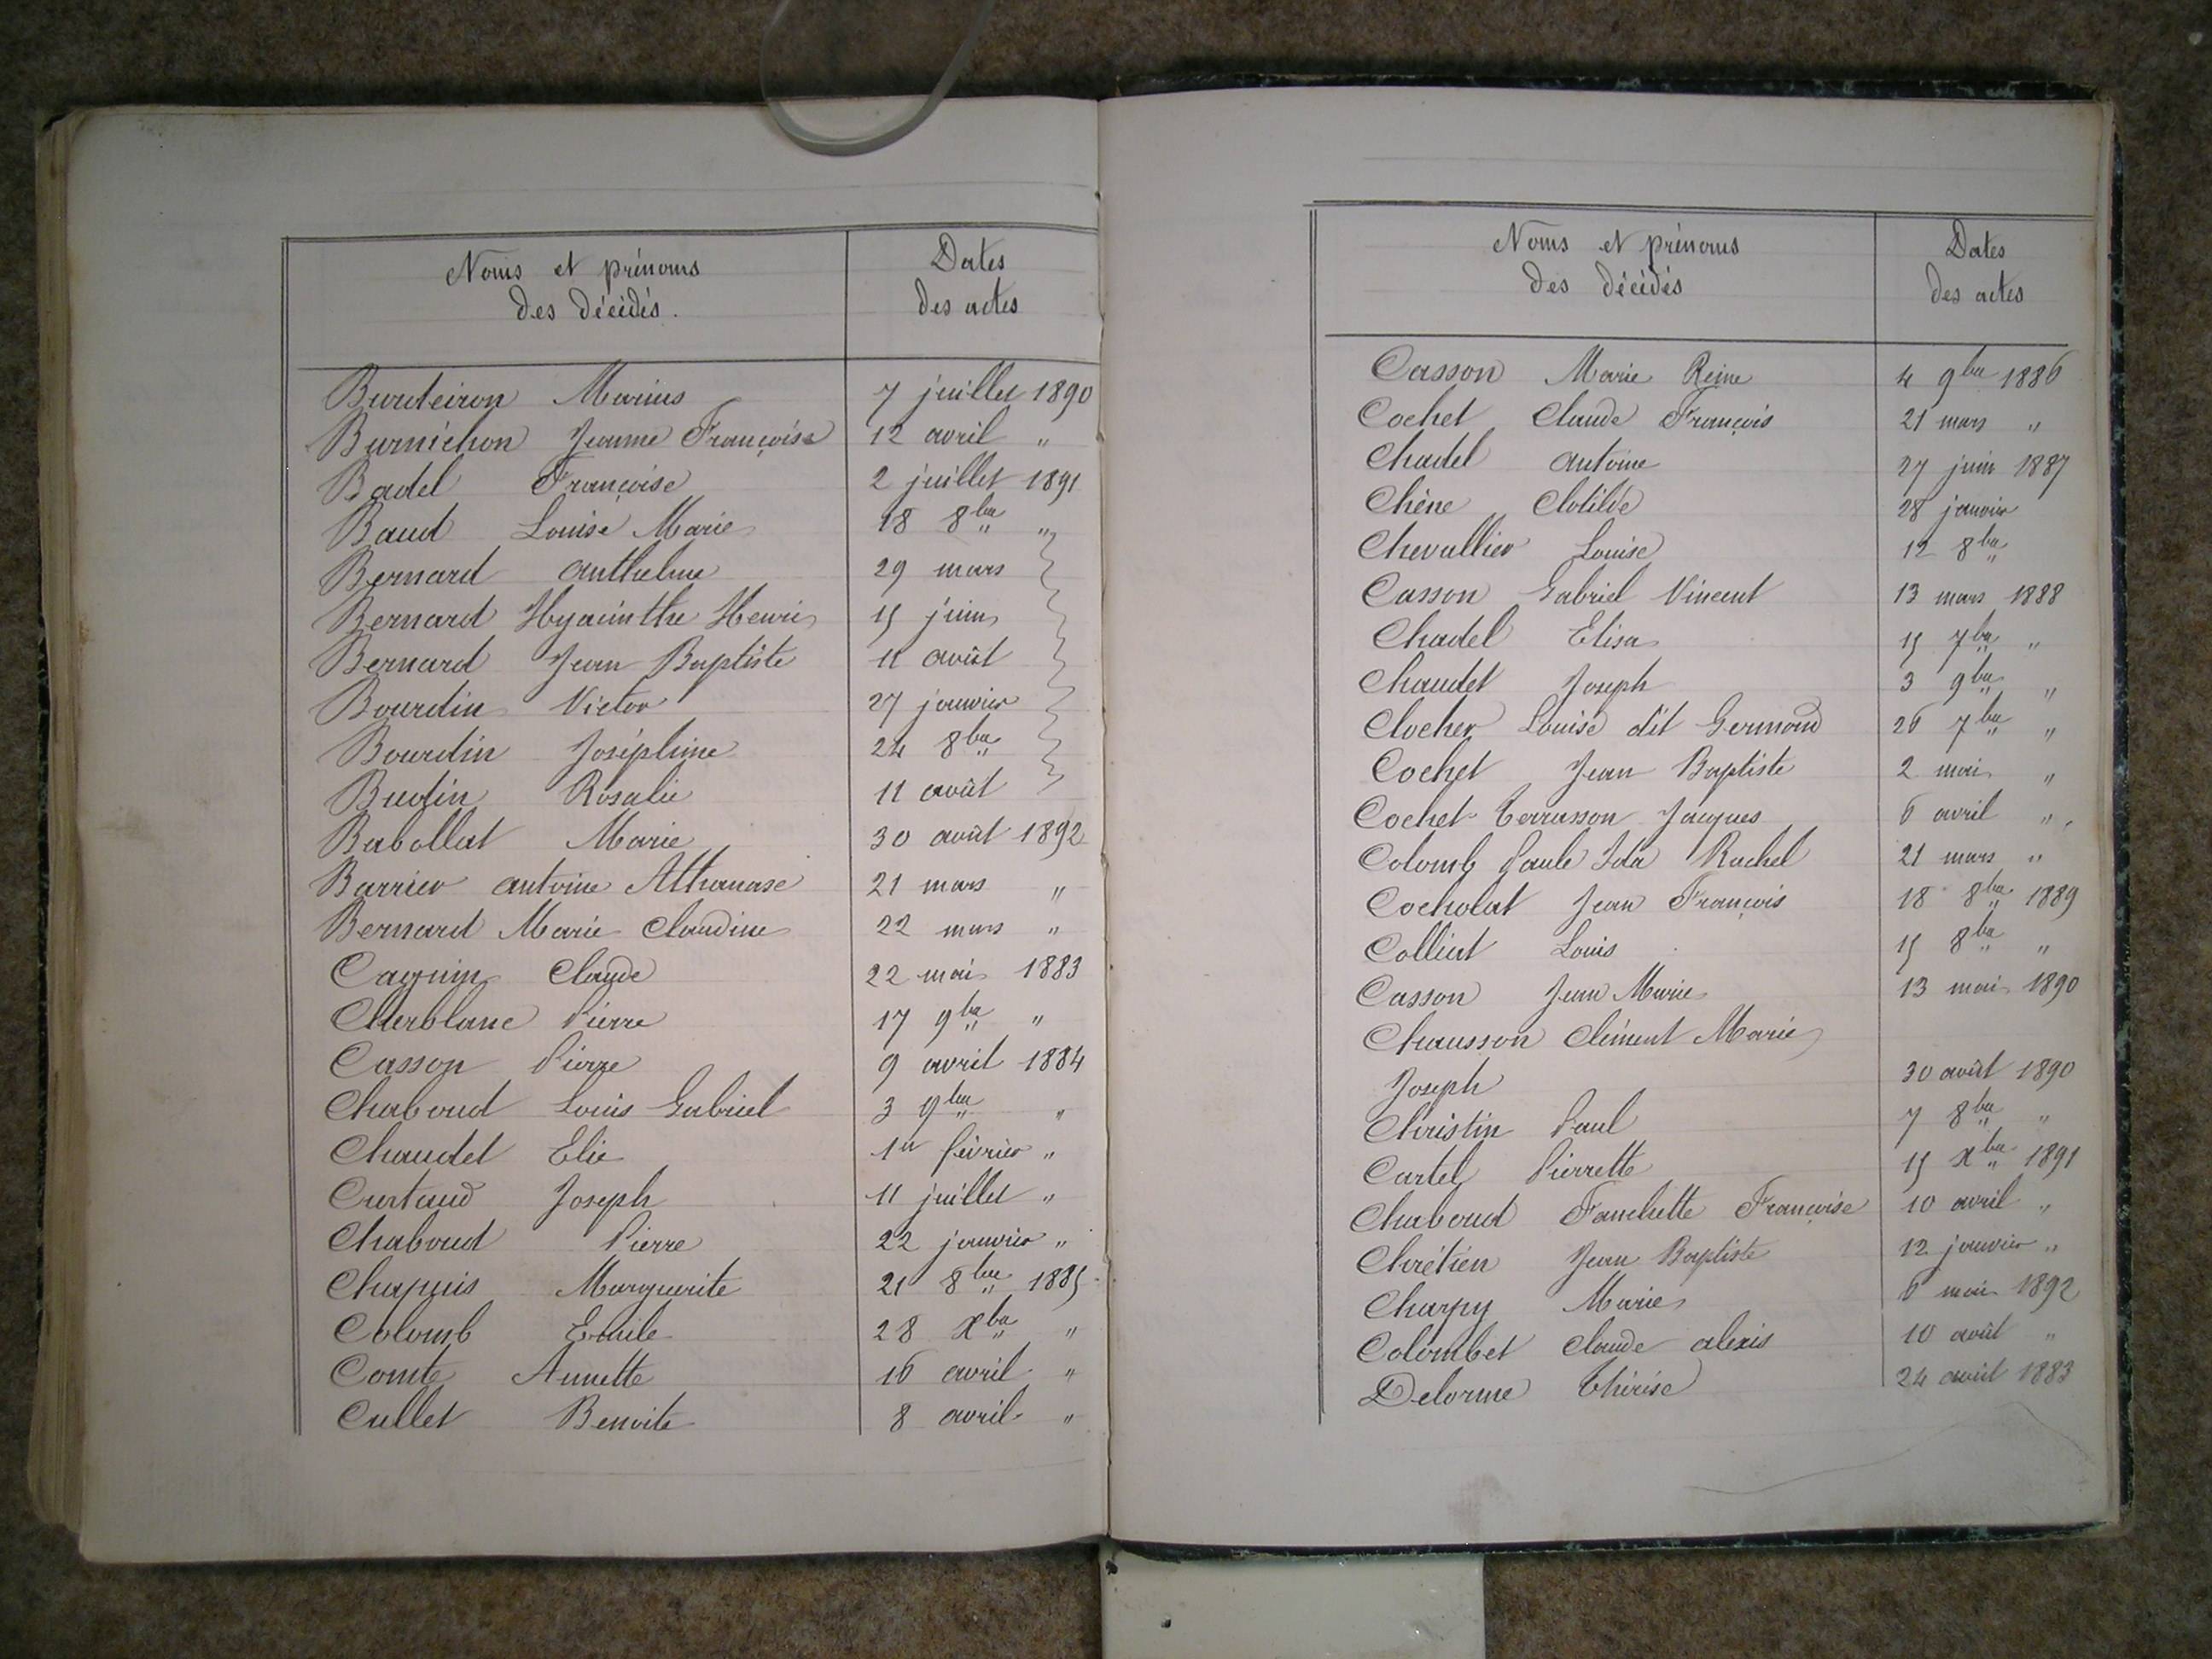 Noms et prénoms Dates
des décédés. des actes
Burdeiron Marius 7 juillet 1890
Burnichon Jeanne Françoise 12 avril "
Badel Françoise 2 juillet 1891
Baud Louise Marie 18 8bre "
Bernard Anthelme 29 mars
Bernard Hyacinthe Henri 15 juin
Bernard Jean Baptiste 11 août
Bourdin Victor 27 janvier
Bourdin Joséphine 24 8bre
Budin Rosalie 11 août
Babollat Marie 30 août 1892
Barrier antoine Athanase 21 mars "
Bernard Marie Claudine 22 mars "
Cagnin Claude 22 mai 1883
Cherblanc Pierre 17 9bre "
Casson Pierre 9 avril 1884
Chaboud Louis Gabriel 3 9bre "
Chaudet Elie 1er février "
Curtaud Joseph 11 juillet "
Chaboud Pierre 22 janvier "
Chapuis Marguerite 21 8bre 1885
Colomb Emile 28 Xbre "
Comte Annette 16 avril "
Cullet Benoite 8 avril "
Noms et prénoms Dates
des décédés des actes
Casson Marie Reine 4 9bre 1886
Cochet Claude François 21 mars "
Chadel Antoine 27 juin 1887
Chêne Clotilde 28 janvier
Chevallier Louise 12 8bre
Casson Gabriel Vincent 13 mars 1888
Chadel Elisa 15 7bre "
Chaudet Joseph 3 9bre "
Clocher Louise dit Germond 26 7bre "
Cochet Jean Baptiste 2 mai "
Cochet-Terrasson Jacques 6 avril "
Colomb Paule Ida Rachel 21 mars "
Cocholat Jean François 18 8bre 1889
Colliat Louis 15 8bre "
Casson Jean Marie 13 mai 1890
Chausson Clément Marie
Joseph 30 août 1890
Christin Paul 7 8bre "
Cartel Pierrette 15 Xbre 1891
Chaboud Fanchette Françoise 10 avril "
Chrétien Jean Baptiste 12 janvier "
Charpy Marie 6 mai 1892
Colombet Claude alexis 10 août "
Delorme Thérèse 24 août 1883